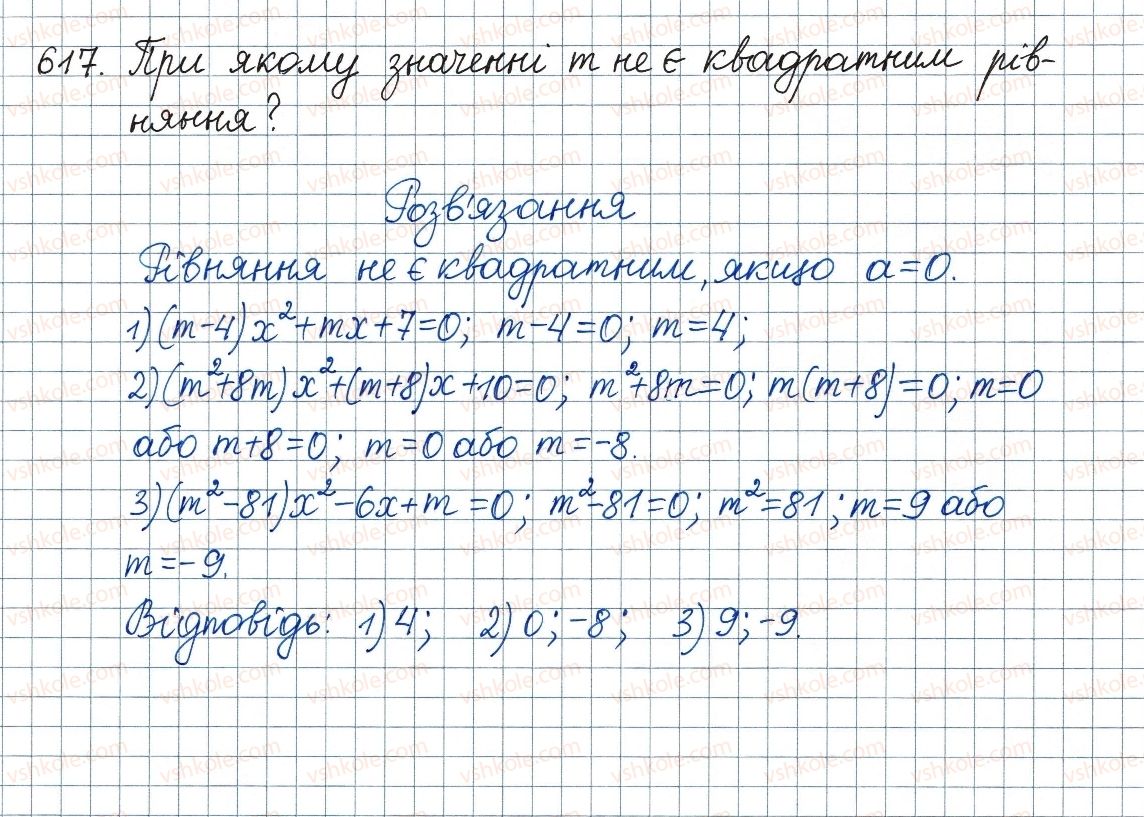 617. При якому значенні m не є квадратним рів-
няння?
Розв'язання
Рівняння не є квадратним, якщо a=0.
1) (m-4)x²+mx+7=0; m-4=0; m=4;
2) (m²+8m)x²+(m+8)x+10=0; m²+8m=0; m(m+8)=0; m=0
або m+8=0; m=0 або m=-8.
3) (m²-81)x²-6x+m=0; m²-81=0; m²=81; m=9 або
m=-9.
Відповідь: 1) 4; 2) 0; -8; 3) 9; -9.